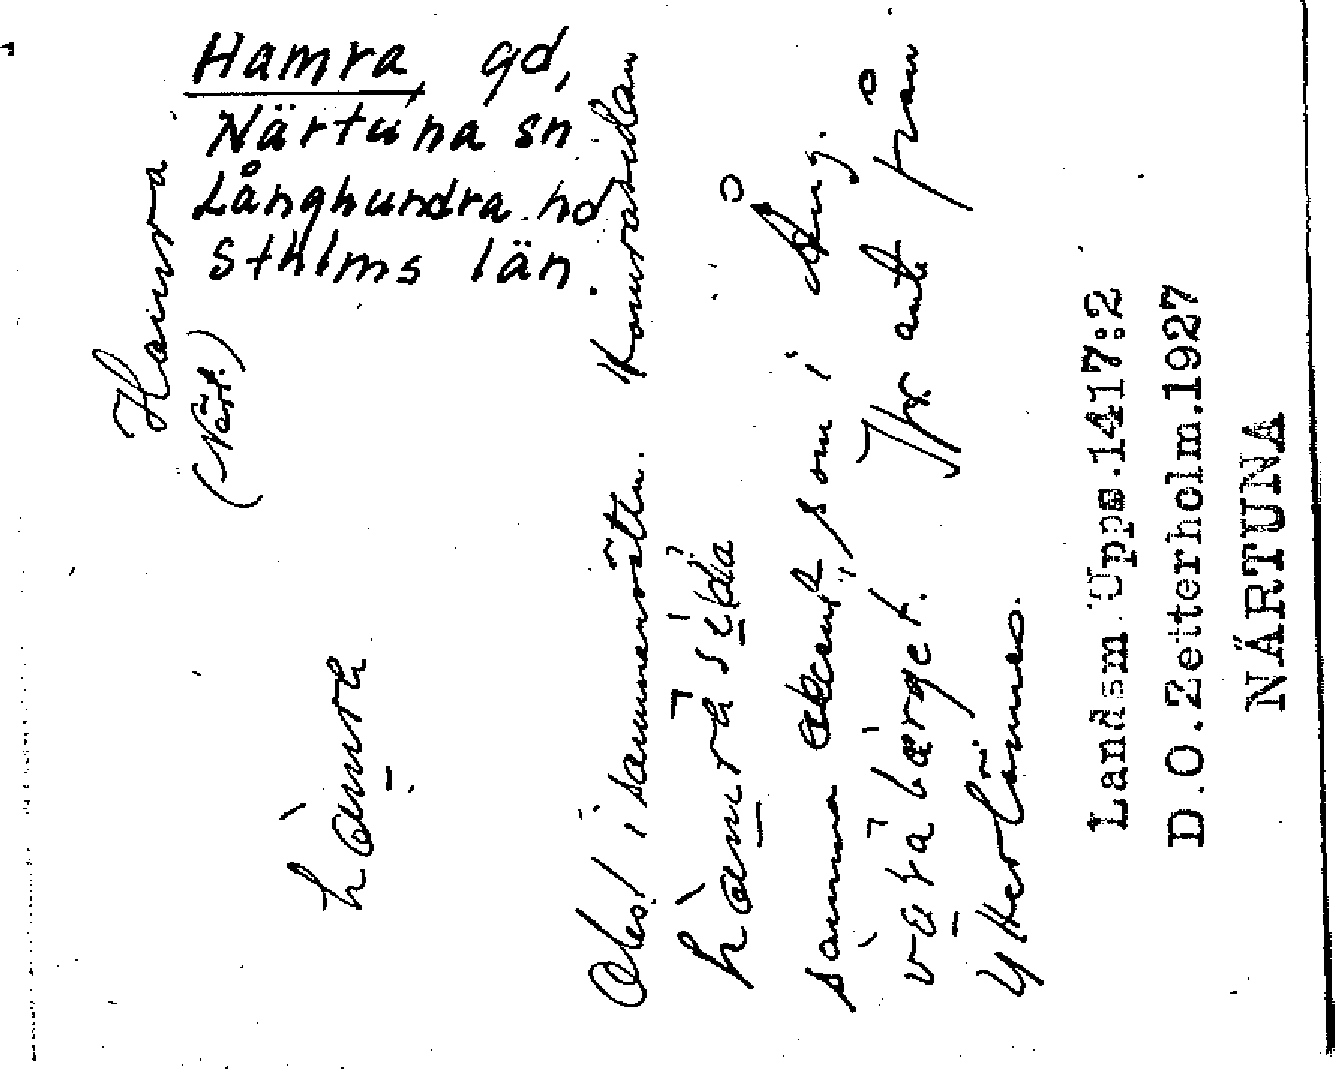 Hamra, gd,
Närtuna sn
Långhundra hd
Sthlms län.
Hamra
(Närt.)
hàmra
Obs! i sammansättn.
hàmra sida
samma akcent som i Ång.
våra bærget. Jfr ant från
Ytterlännäs.
Landsm. Upps. 1417:2
D.O.Zetterholm.1927
NÄRTUNA